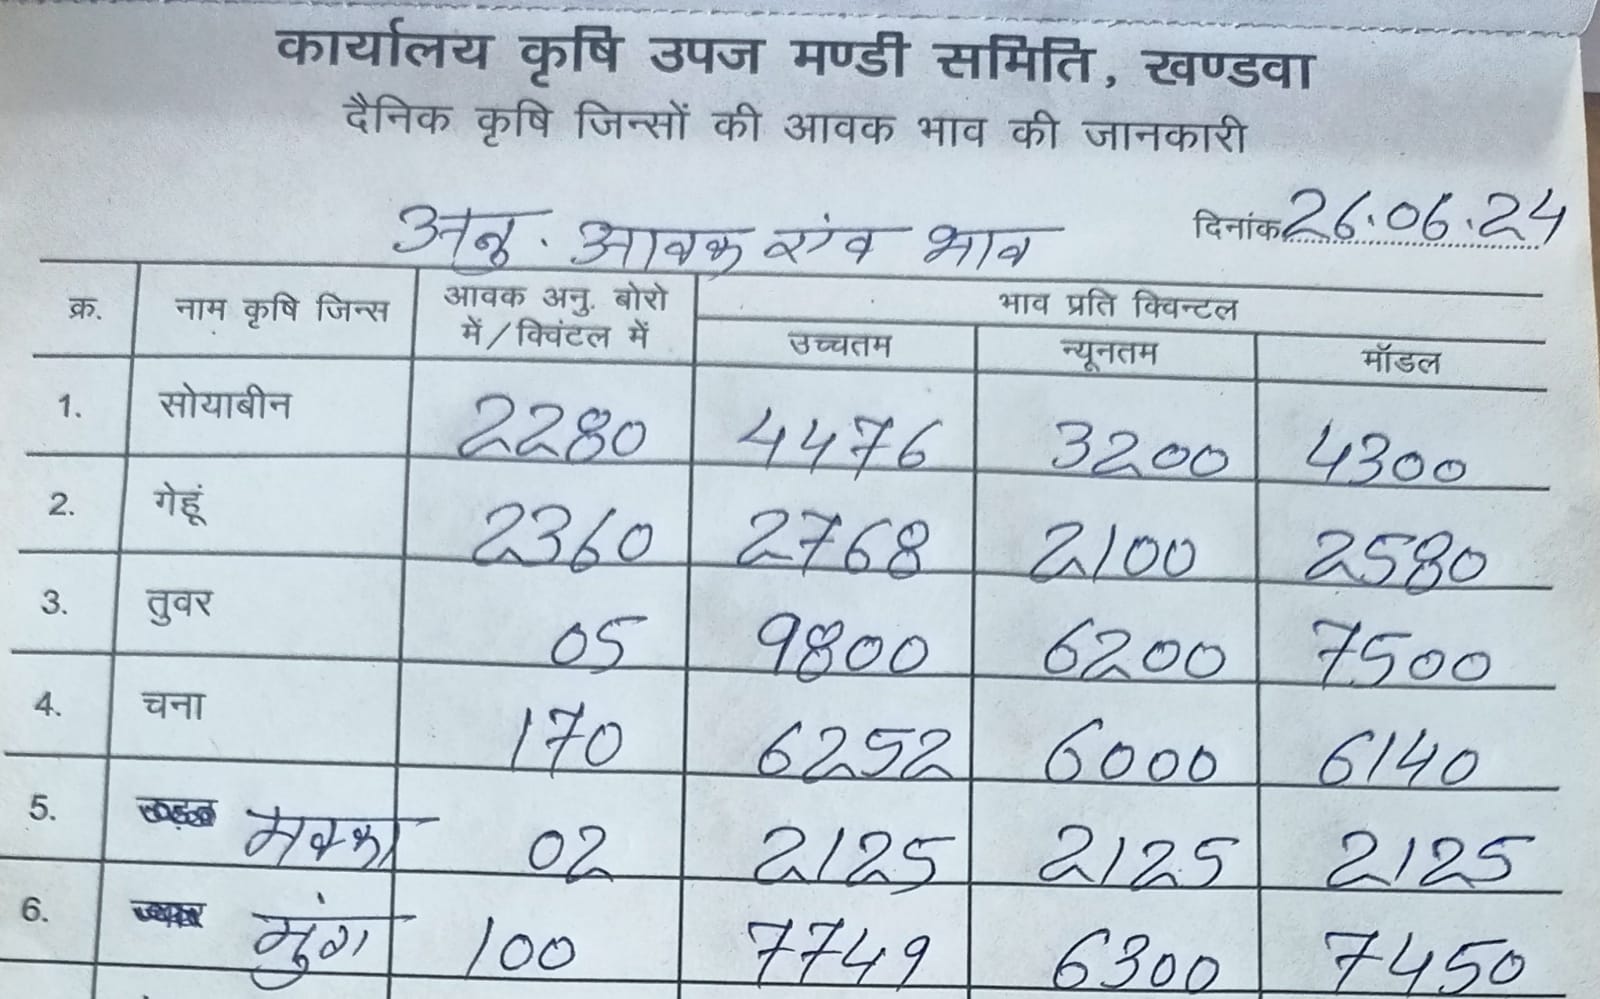 कार्यालय कृषि उपज मण्डी समिति, खण्डवा
दैनिक कृषि जिन्सों की आवक भाव की जानकारी
दिनांक 26.06.24
अनु. आवक एंव भाव
क्र. नाम कृषि जिन्स आवक अनु. बोरो में/क्विंटल में भाव प्रति क्विन्टल
उच्चतम न्यूनतम मॉडल
1. सोयाबीन 2280 4476 3200 4300
2. गेहूं 2360 2768 2100 2580
3. तुवर 05 9800 6200 7500
4. चना 170 6252 6000 6140
5. मक्का 02 2125 2125 2125
6. मुंग 100 7749 6300 7450